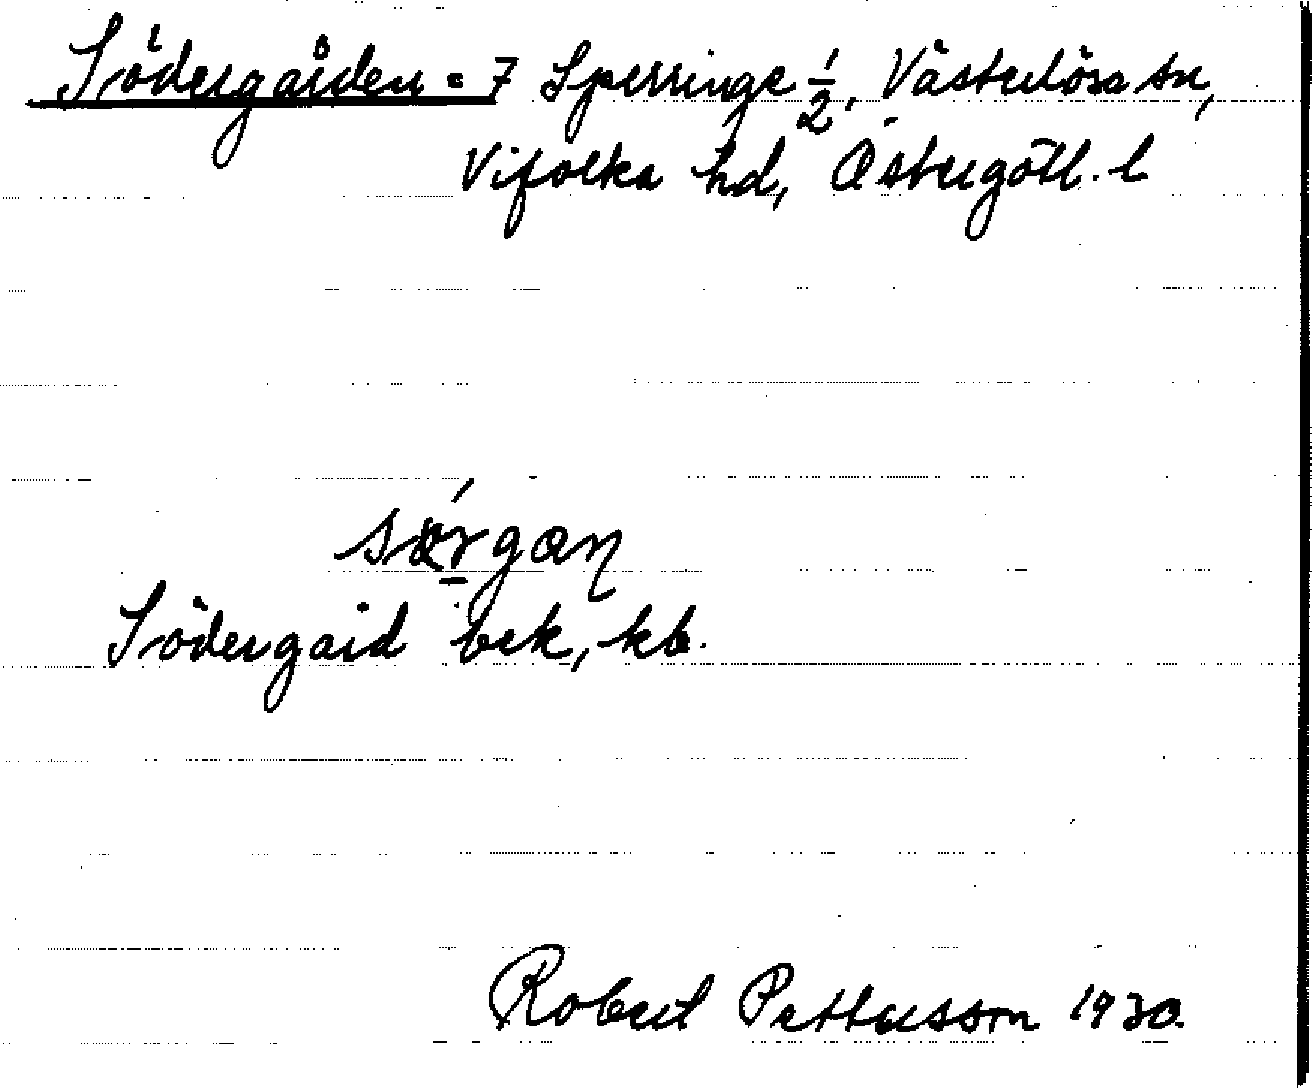 Södergården = 7 Sperringe 1/2, Västerlösa sn,
Vifolka hd, Östergötl. l
Södergård bek, kb.
Robert Pettersson 1930.